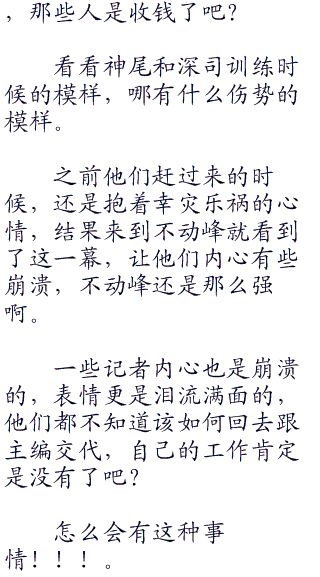 ，那些人是收钱了吧？
看看神尾和深司训练时
候的模样，哪有什么伤势的
模样。
之前他们赶过来的时
候，还是抱着幸灾乐祸的心
情，结果来到不动峰就看到
了这一幕，让他们内心有些
崩溃，不动峰还是那么强
啊。
一些记者内心也是崩溃
的，表情更是泪流满面的，
他们都不知道该如何回去跟
主编交代，自己的工作肯定
是没有了吧？
怎么会有这种事
情！！！。